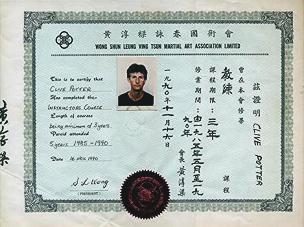 黃淳樑詠春國術會
WONG SHUN LEUNG VING TSUN MARTIAL ART ASSOCIATION LIMITED
This is to certify that
CLIVE POTTER
Has completed the
INSTRUCTORS COURSE
Length of course
being minimum of 3 years
Period attended
5 years 1985 - 1990
Date 16 NOV 1990
S L Wong
(PRESIDENT)
茲證明 CLIVE POTTER
曾在本會修畢
教練 課程
課程期限：三年
會長 黃淳樑
一九九0年十一月十六